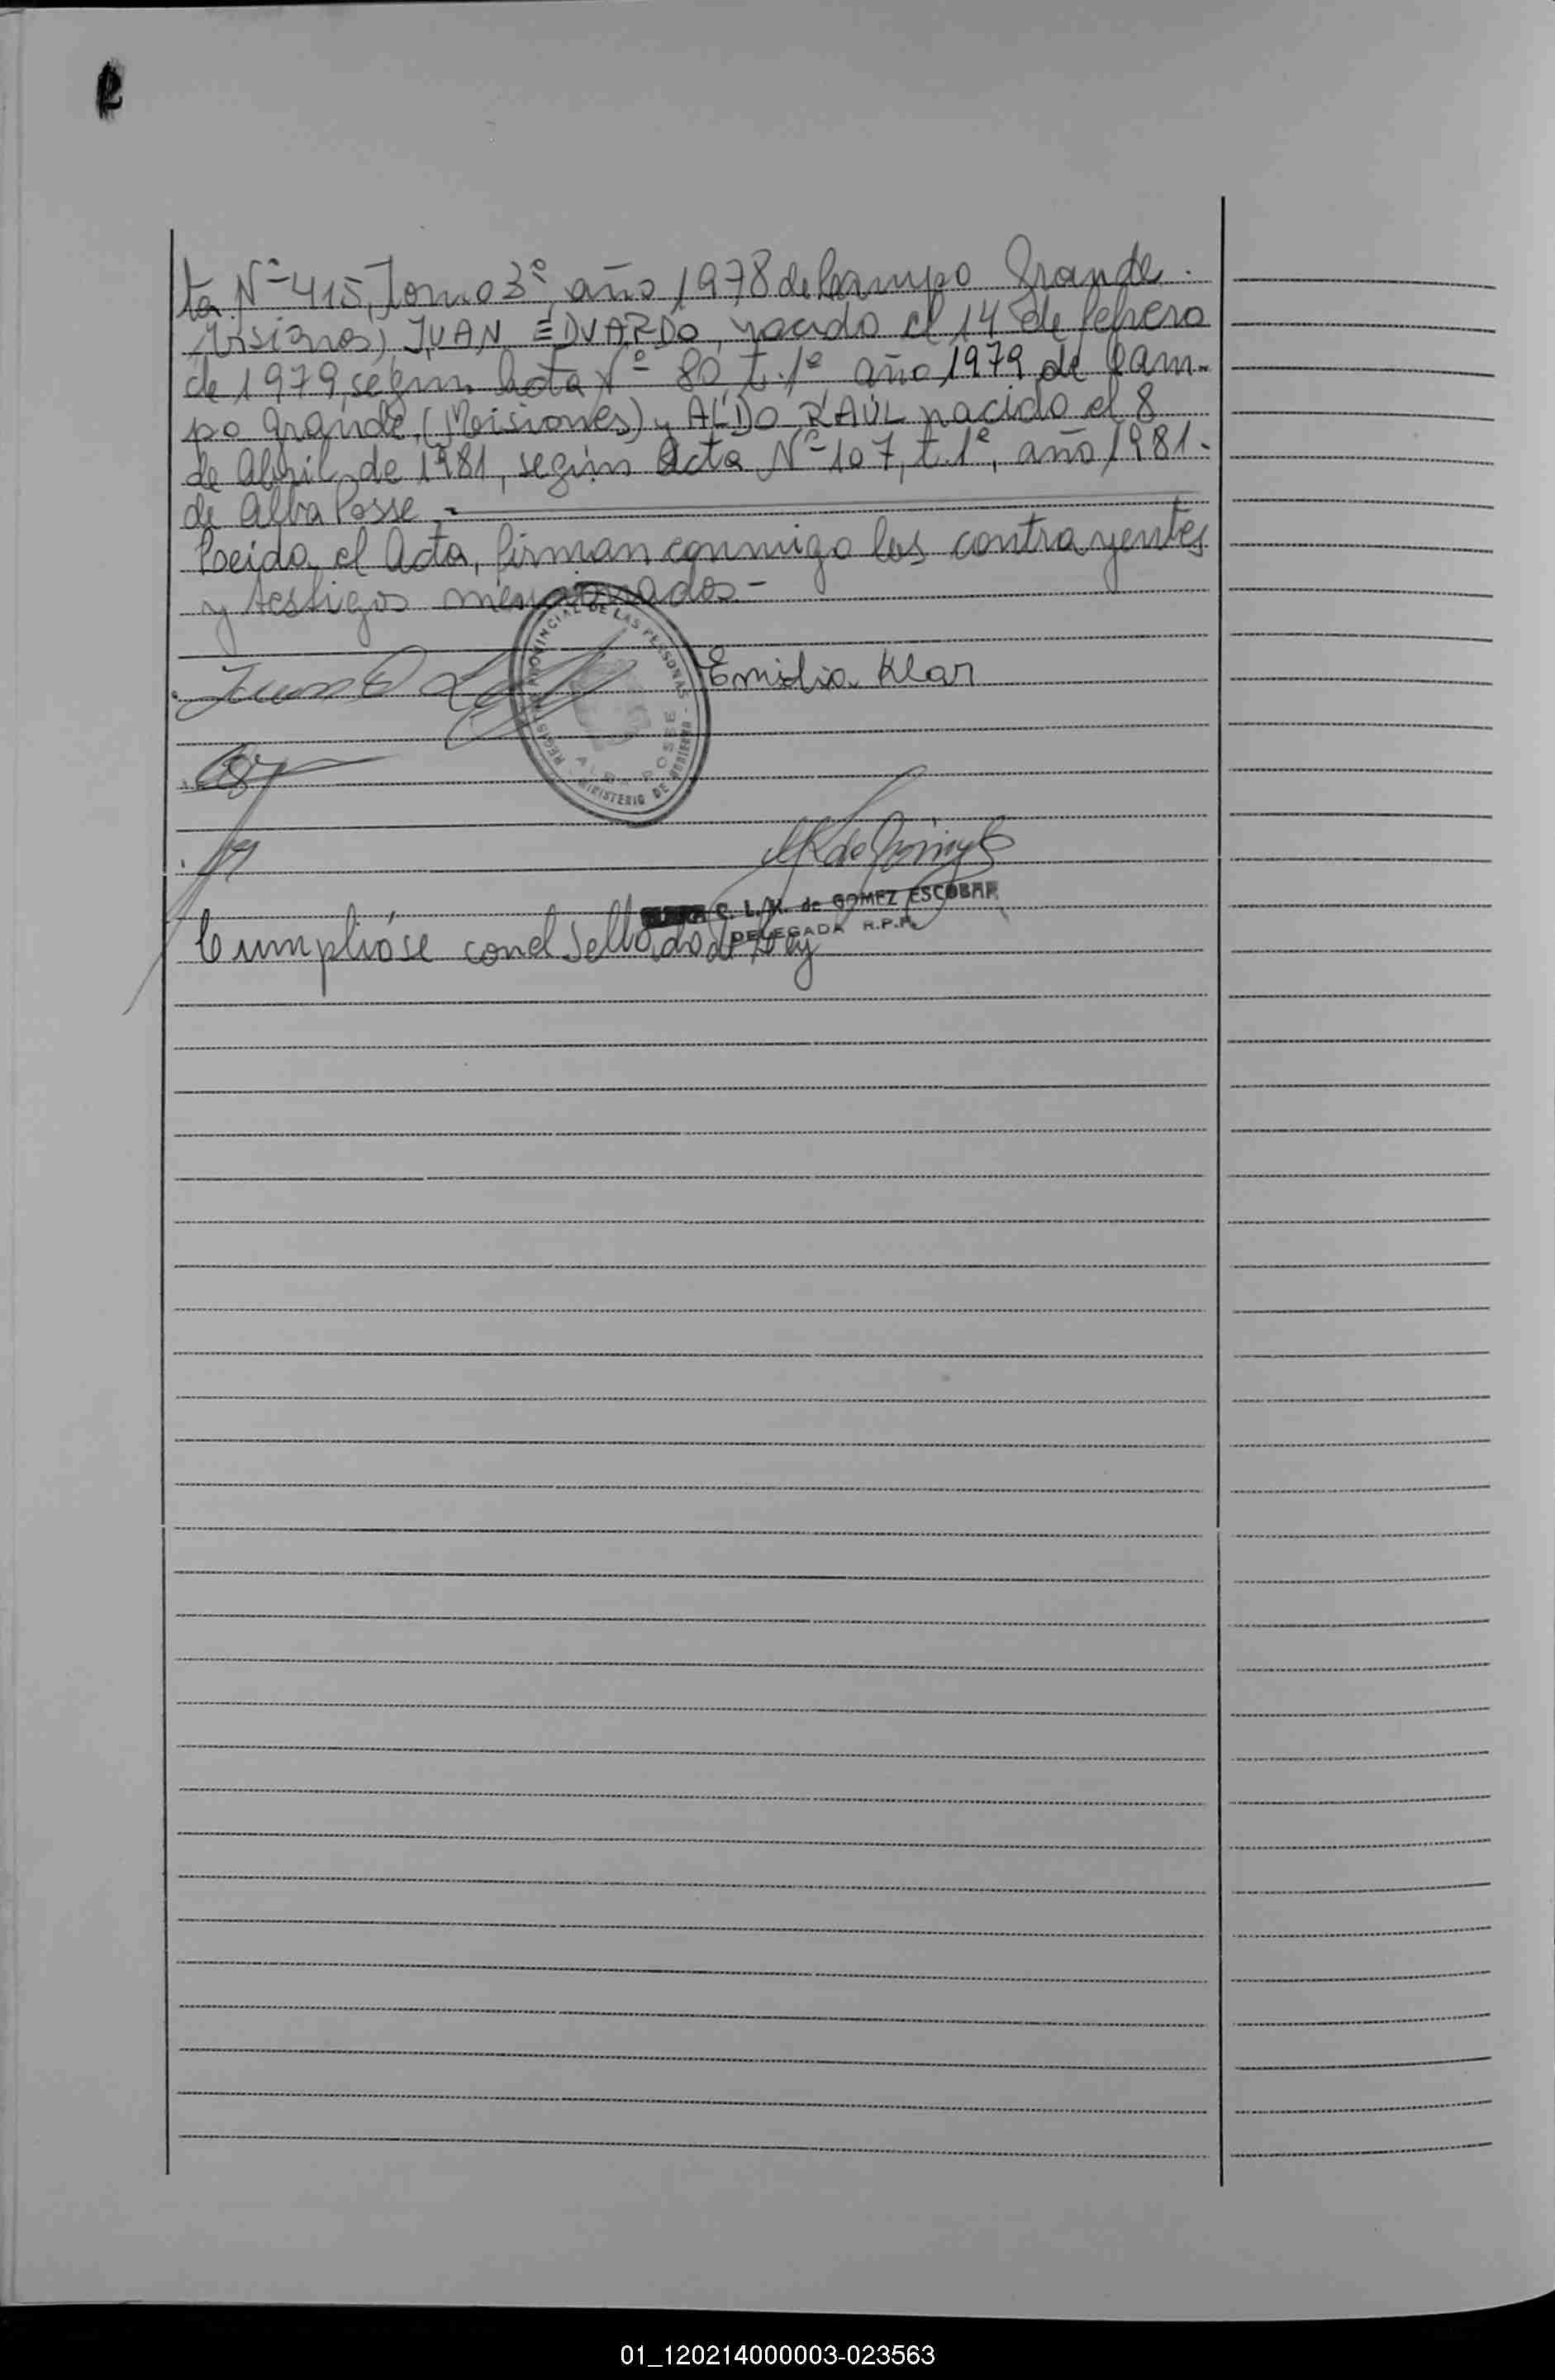 ta Nº 415, Tomo 3º, año 1978 de Campo Grande.
(Misiones) JUAN EDUARDO, nacido el 14 de febrero
de 1979, según Acta Nº 80, t. 1º, año 1979, de Cam-
po Grande, (Misiones) y ALDO RAÚL nacido el 8
de Abril de 1981, según Acta Nº 107, t. 1º, año 1981-
de Alba Posse.-
Leída el Acta, firman conmigo los contrayentes
y testigos mencionados.-
PROVINCIAL DE LAS PERSONAS
Emidia Klar
ALBA POSSE
MINISTERIO DE GOBIERNO
C. L. K. de GOMEZ ESCOBAR
DELEGADA R.P.P.
Cumplióse con el Sellado de Ley
01_120214000003-023563